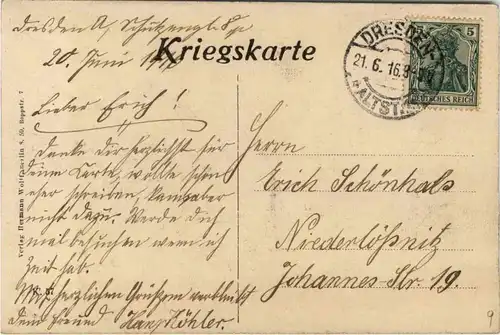 Dresden A, Schützengl. 8 p
20. Juni
Kriegskarte
DRESDEN-
21. 6. 16. 8-
ALTST.
5
DEUTSCHES REICH
Lieber Erich!
Danke dir herzlichst für
deine Karte, wollte schon
eher schreiben, kam aber
nicht dazu. Werde dich
mal besuchen wenn ich
Zeit hab.
Mit herzlichen Grüßen verbleibt
dein Freund Hans Köhler.
Herrn
Erich Schönhals
Niederlößnitz
Johannes Str. 19.
Verlag Hermann Wolff, Berlin S. 59, Boppstr. 7
9